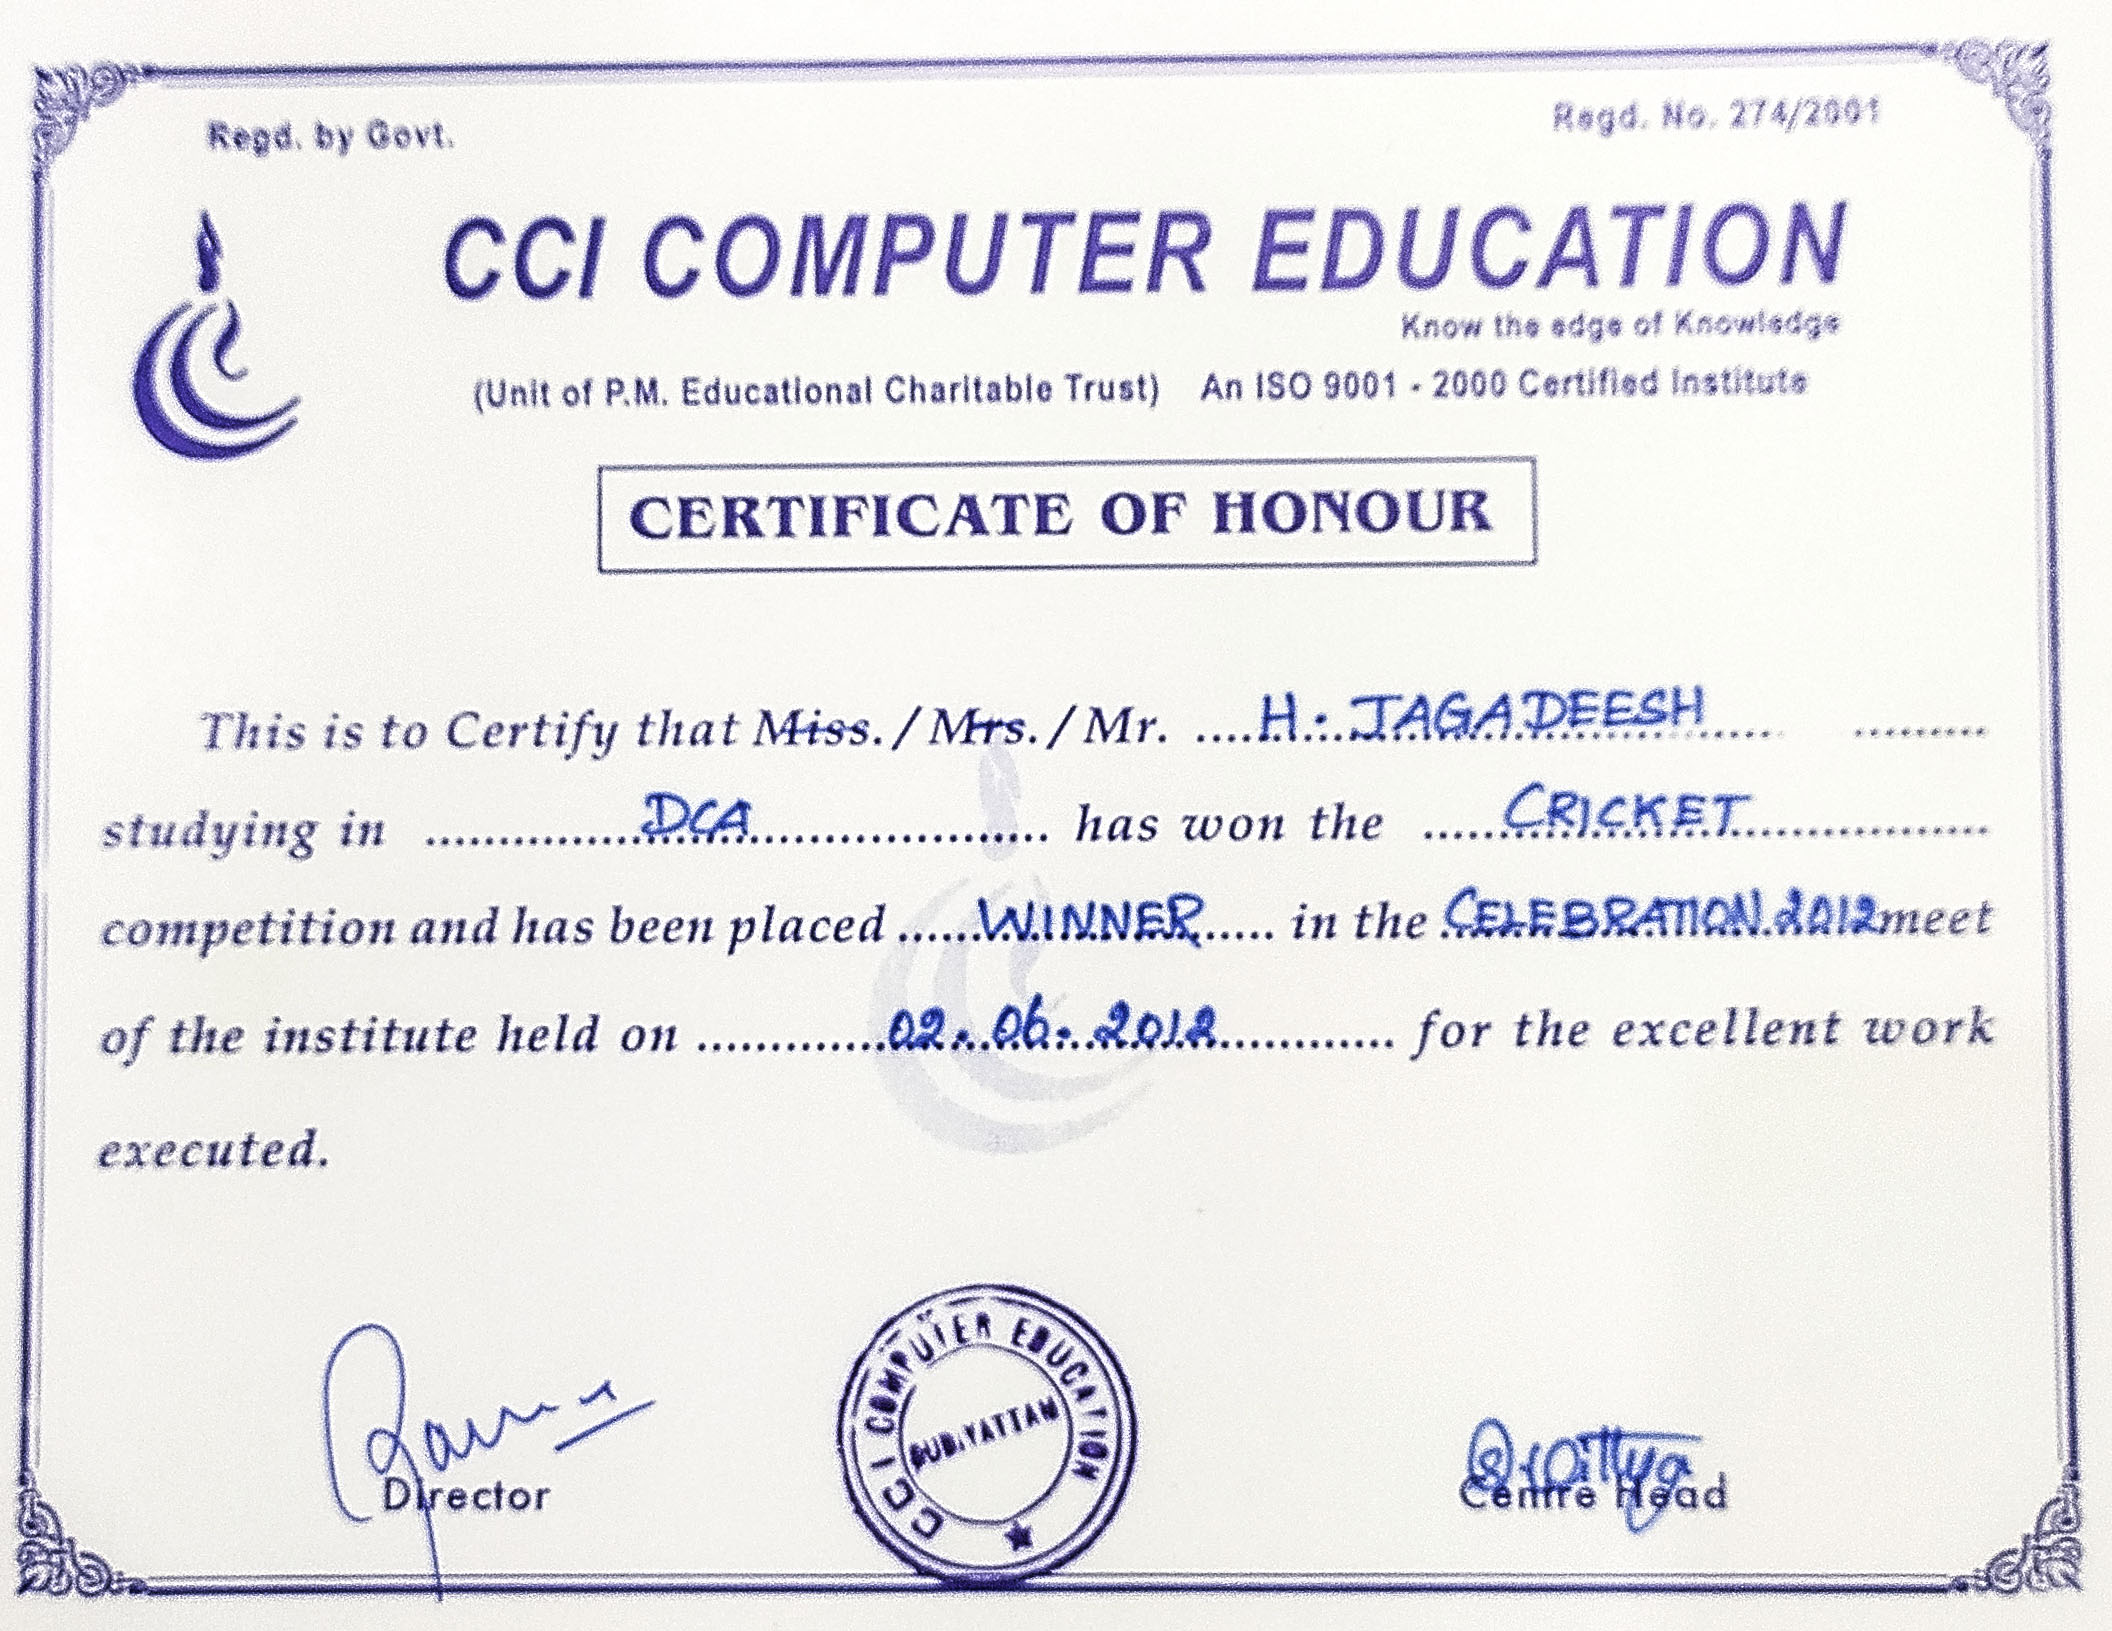 Regd. by Govt.
Regd. No. 274/2001
CCI COMPUTER EDUCATION
Know the edge of Knowledge
(Unit of P.M. Educational Charitable Trust) An ISO 9001 - 2000 Certified Institute
CERTIFICATE OF HONOUR
This is to Certify that Miss. / Mrs. / Mr. ....H. JAGADEESH.... .........
studying in ..........DCA.......... has won the .....CRICKET..........
competition and has been placed .....WINNER..... in the CELEBRATION.2012 meet
of the institute held on ..........02.06.2012.......... for the excellent work
executed.
CCI COMPUTER EDUCATION
GUDIYATTAM
Director
Centre Head